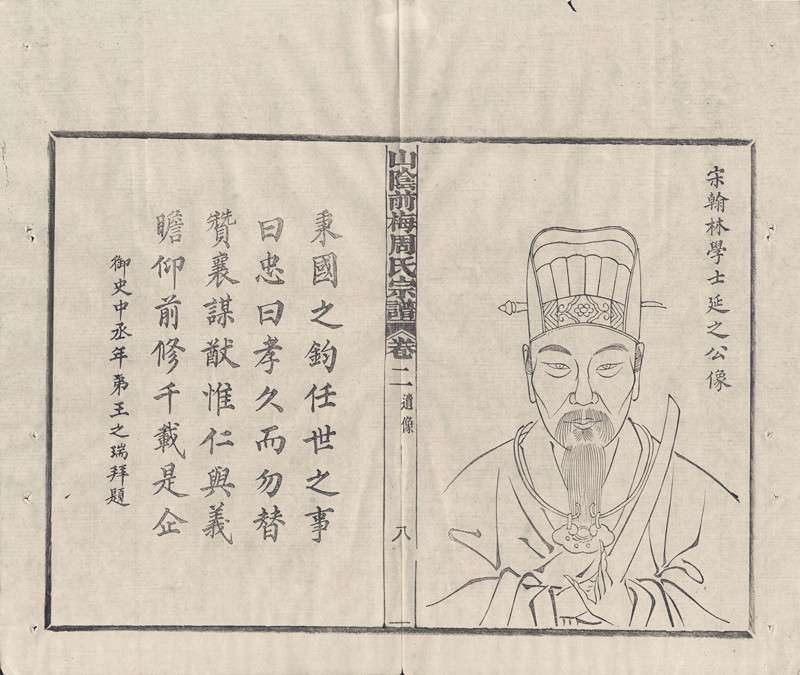 宋翰林學士延之公像
山陰前梅周氏宗譜
卷二
遺像
八
秉國之鈞任世之事
曰忠曰孝久而勿替
贊襄謀猷惟仁與義
瞻仰前修千載是企
御史中丞年弟王之瑞拜題